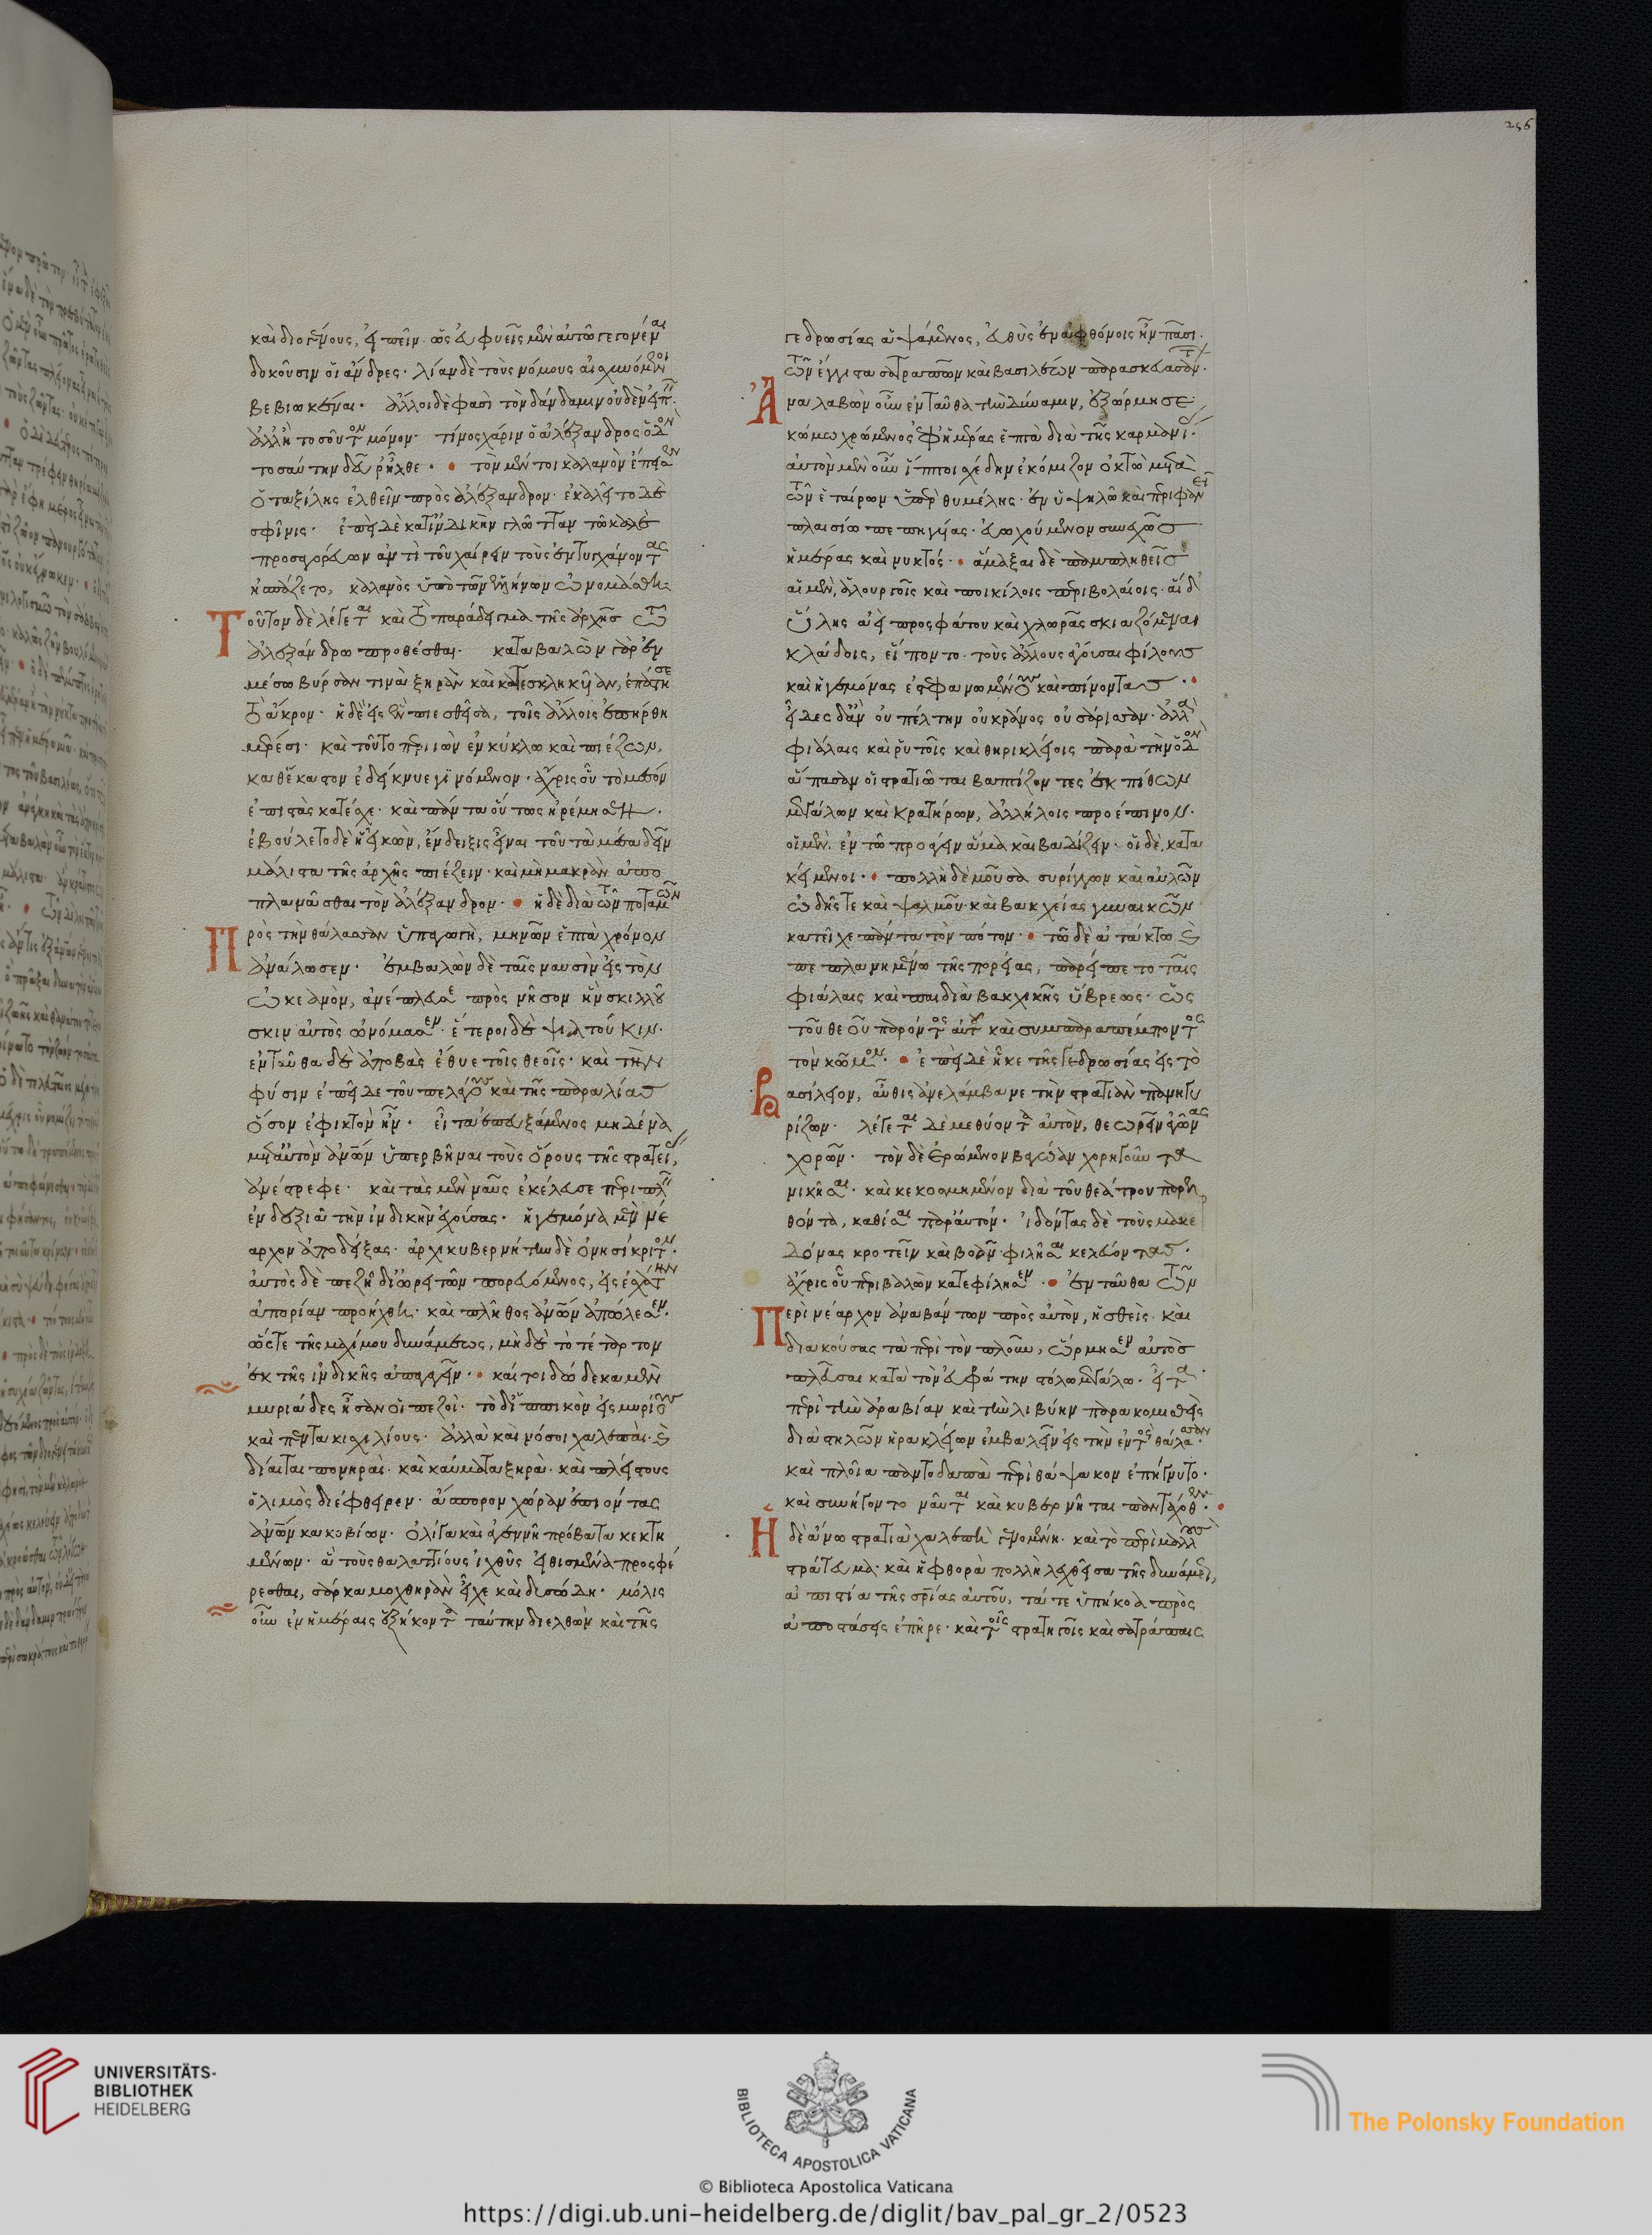 256
καὶ διογένους, εἰπεῖν. ὡς εὐφυεῖς μὲν αὐτῶ γεγονέναι
δοκοῦσιν οἱ ἄνδρες· λίαν δὲ τοὺς νόμους αἰσχυνόμενοι
βεβιωκέναι· ἄλλοι δέ φασι τὸν δάνδαμιν οὐδὲν εἰπεῖν·
ἀλλ' ἢ τοσοῦτον μόνον· τίνος χάριν ὁ ἀλέξανδρος ὁδὸν
τοσαύτην δεῦρ' ἦλθε· τὸν μέντοι καλανὸν ἔπεισεν
ὁ ταξίλης ἐλθεῖν πρὸς ἀλέξανδρον. ἐκαλεῖτο δὲ
σφίνις· ἐπεὶ δὲ κατ' ἰνδικὴν γλῶτταν τῶ καλὲ
προσαγορεύων ἀντὶ τοῦ χαίρειν τοὺς ἐντυγχάνοντας
ἠσπάζετο, καλανὸς ὑπὸ τῶν ἑλλήνων ὠνομάσθη
Τοῦτον δὲ λέγεται καὶ τὸ παράδειγμα τῆς ἀρχῆς τῶ
ἀλεξάνδρω προθέσθαι· καταβαλὼν γὰρ ἐν
μέσω βύρσαν τινὰ ξηρὰν καὶ κατεσκληκυῖαν, ἐπάτησε
τὸ ἄκρον· ἡ δὲ εἰς ἓν πιεσθεῖσα, τοῖς ἄλλοις ἐπήρθη
μέρεσι· καὶ τοῦτο περιιὼν ἐν κύκλω καὶ πιέζων,
καθ' ἕκαστον ἐδείκνυε γινόμενον· ἄχρις οὗ τὸ μέσον
ἐπιστὰς κατέσχε· καὶ πάντα οὕτως ἠρέμησεν·
ἐβούλετο δὲ ἡ εἰκὼν, ἔνδειξις εἶναι τοῦ τὰ μέσα δεῖν
μάλιστα τῆς ἀρχῆς πιέζειν· καὶ μὴ μακρὰν ἀπο
πλανᾶσθαι τὸν ἀλέξανδρον· ἡ δὲ διὰ τῶν ποταμῶν
Πρὸς τὴν θάλασσαν ὑπαγωγὴ, μηνῶν ἑπτὰ χρόνον
ἀνάλωσεν· ἐμβαλὼν δὲ ταῖς ναυσὶν εἰς τὸν
ὠκεανὸν, ἀνέπλευσε πρὸς νῆσον ἣν σκιλλοῦ
σκιν αὐτὸς ὠνόμασεν· ἕτεροι δὲ ψιλτούκιν·
ἐνταῦθα δὲ ἀποβὰς ἔθυε τοῖς θεοῖς· καὶ τὴν
φύσιν ἐπεῖδε τοῦ πελάγους καὶ τῆς παραλίας
ὅσον ἐφικτὸν ἦν· εἶτ' ἐπευξάμενος μηδένα
μετ' αὐτὸν ἀνθρώπων ὑπερβῆναι τοὺς ὅρους τῆς στρατείας,
ἀνέστρεφε· καὶ τὰς μὲν ναῦς ἐκέλευσε περιπλεῖν
ἐν δεξιᾶ τὴν ἰνδικὴν ἐχούσας· ἡγεμόνα μὲν νέ
αρχον ἀποδείξας· ἀρχικυβερνήτην δὲ ὀνησίκριτον·
αὐτὸς δὲ πεζῆ δι' ὠρειτῶν πορευόμενος, εἰς ἐσχάτην
ἀπορίαν προήχθη· καὶ πλῆθος ἀνθρώπων ἀπώλεσεν·
ὥστε τῆς μαχίμου δυνάμεως, μηδὲ τὸ τέταρτον
ἐκ τῆς ἰνδικῆς ἀπαγαγεῖν· καίτοι δώδεκα μὲν
μυριάδες ἦσαν οἱ πεζοί· τὸ δ' ἱππικὸν εἰς μυρίους
καὶ πεντακισχιλίους· ἀλλὰ καὶ νόσοι χαλεπαὶ· καὶ
δίαιται πονηραὶ· καὶ καύματα ξηρὰ· καὶ πλείστους
ὁ λιμὸς διέφθειρεν· ἄσπορον χώραν ἐπιόντας
ἀνθρώπων κακοβίων· ὀλίγα καὶ ἀγεννῆ πρόβατα κεκτη
μένων· ἃ τοὺς θαλαττίους ἰχθῦς εἰθισμένα προσφέ
ρεσθαι, σάρκα μοχθηρὰν εἶχε καὶ δυσώδη· μόλις
οὖν ἐν ἡμέραις ἑξήκοντα ταύτην διελθὼν καὶ τῆς
γεδρωσίας ἁψάμενος, εὐθὺς ἐν ἀφθόνοις ἦν πᾶσι·
τῶν ἔγγιστα σατραπῶν καὶ βασιλέων παρασκευασάντων·
Ἀναλαβὼν οὖν ἐνταῦθα τὴν δύναμιν, ἐξώρμησε
κώμω χρώμενος ἐφ' ἡμέρας ἑπτὰ διὰ τῆς καρμανίας·
αὐτὸν μὲν οὖν ἵπποι σχέδην ἐκόμιζον ὀκτὼ μετὰ
τῶν ἑταίρων ὑπὲρ θυμέλης· ἐν ὑψηλῶ καὶ περιφανεῖ
πλαισίω πεπηγυίας· εὐωχούμενον συνεχῶς
ἡμέρας καὶ νυκτός· ἅμαξαι δὲ παμπληθεῖς
αἱ μὲν, ἁλουργοῖς καὶ ποικίλοις περιβολαίοις· αἱ δ'
ὕλης ἀεὶ προσφάτου καὶ χλωρᾶς σκιαζόμεναι
κλάδοις, εἵποντο· τοὺς ἄλλους ἄγουσαι φίλους
καὶ ἡγεμόνας ἐστεφανωμένους καὶ πίνοντας·
εἶδες δ' ἂν οὐ πέλτην οὐ κράνος οὐ σάρισαν· ἀλλὰ
φιάλαις καὶ ῥυτοῖς καὶ θηρικλείοις παρὰ τὴν ὁδὸν
ἅπασαν οἱ στρατιῶται βαπτίζοντες ἐκ πίθων
μεγάλων καὶ κρατήρων, ἀλλήλοις προέπινον·
οἱ μὲν, ἐν τῶ προάγειν ἅμα καὶ βαδίζειν· οἱ δὲ, κατα
κείμενοι· πολλὴ δὲ μοῦσα συρίγγων καὶ αὐλῶν
ὠδῆς τε καὶ ψαλμοῦ· καὶ βακχείας γυναικῶν
κατεῖχε πάντα τὸν τόπον· τῶ δὲ ἀτάκτω καὶ
πεπλανημένω τῆς πορείας, παρείπετο ταῖς
φιάλαις καὶ παιδιὰ βακχικῆς ὕβρεως· ὡς
τοῦ θεοῦ παρόντος αὐτοῦ καὶ συμπαραπέμποντος
τὸν κῶμον· ἐπεὶ δὲ ἧκε τῆς γεδρωσίας εἰς τὸ
Βασίλειον, αὖθις ἀνελάμβανε τὴν στρατιὰν πανηγυ
ρίζων· λέγεται δὲ μεθύοντα αὐτὸν, θεωρεῖν ἀγῶνας
χορῶν· τὸν δὲ ἐρώμενον βαγώαν χορηγοῦντα
νικῆσαι· καὶ κεκοσμημένον διὰ τοῦ θεάτρου παρελ
θόντα, καθίσαι παρ' αὐτόν· ἰδόντας δὲ τοὺς μακε
δόνας κροτεῖν καὶ βοᾶν φιλῆσαι κελεύοντας·
ἄχρις οὗ περιβαλὼν κατεφίλησεν· ἐνταῦθα τῶν
Περὶ νέαρχον ἀναβάντων πρὸς αὐτὸν, ἡσθεὶς καὶ
διακούσας τὰ περὶ τὸν πλοῦν, ὥρμησεν αὐτὸς
πλεῦσαι κατὰ τὸν εὐφράτην στόλω μεγάλω· εἶτα
περὶ τὴν ἀραβίαν καὶ τὴν λιβύην παρακομισθεὶς
διὰ στηλῶν ἡρακλείων ἐμβαλεῖν εἰς τὴν ἐντὸς θάλασσαν·
καὶ πλοῖα παντοδαπὰ περὶ θάψακον ἐπήγνυτο·
καὶ συνήγοντο ναῦται καὶ κυβερνῆται πανταχόθεν·
Ἡ δὲ ἄνω στρατιὰ χαλεπὴ γενομένη· καὶ τὸ περὶ μαλλοὺς
τραῦμα· καὶ ἡ φθορὰ πολλὴ λεχθεῖσα τῆς δυνάμεως,
ἀπιστία τῆς σωτηρίας αὐτοῦ, τά τε ὑπήκοα πρὸς
ἀποστάσεις ἐπῆρε· καὶ τοῖς στρατηγοῖς καὶ σατράπαις
UNIVERSITÄTS-
BIBLIOTHEK
HEIDELBERG
BIBLIOTECA APOSTOLICA VATICANA
The Polonsky Foundation
© Biblioteca Apostolica Vaticana
https://digi.ub.uni-heidelberg.de/diglit/bav_pal_gr_2/0523